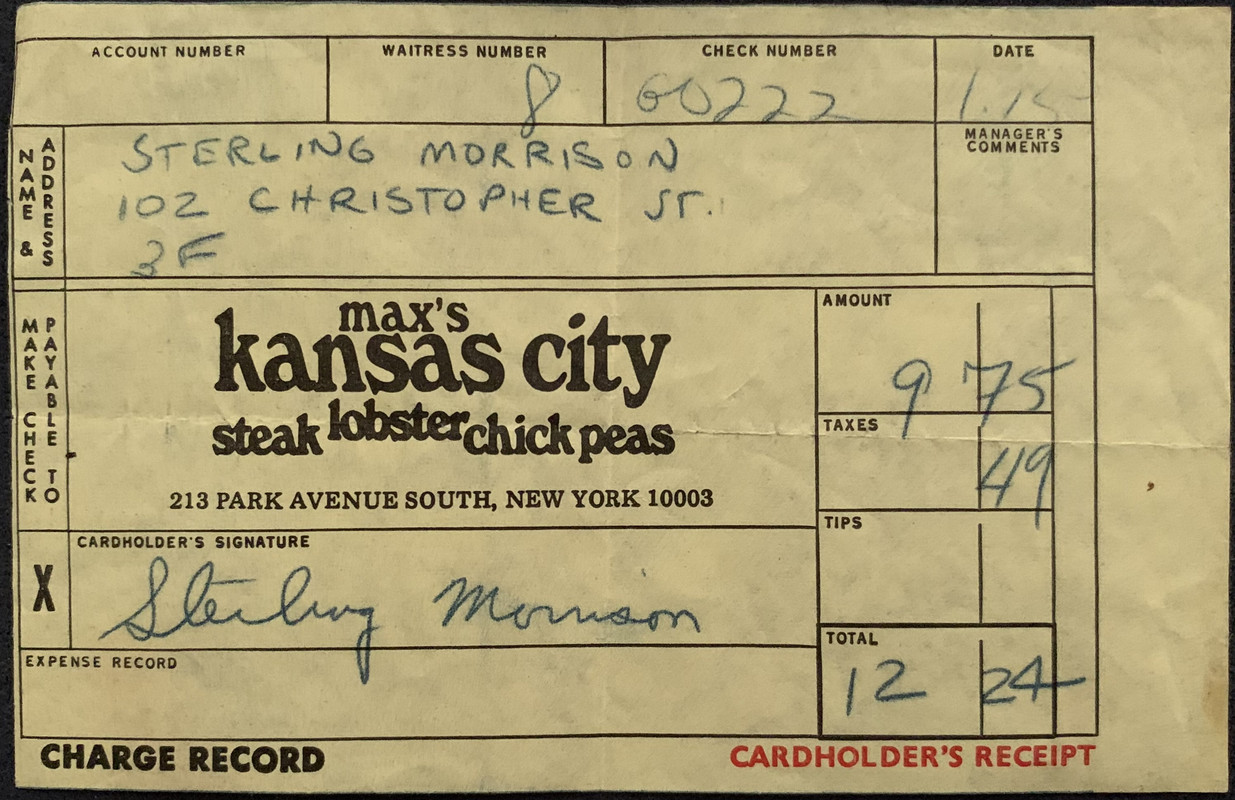 ACCOUNT NUMBER
WAITRESS NUMBER
8
CHECK NUMBER
60222
DATE
MANAGER'S
COMMENTS
NAME & ADDRESS
STERLING MORRISON
102 CHRISTOPHER ST.
3F
MAKE CHECK PAYABLE TO
max's
kansas city
steak lobster chick peas
213 PARK AVENUE SOUTH, NEW YORK 10003
AMOUNT
9 75
TAXES
49
TIPS
TOTAL
12 24
CARDHOLDER'S SIGNATURE
X
Sterling Morrison
EXPENSE RECORD
CHARGE RECORD
CARDHOLDER'S RECEIPT